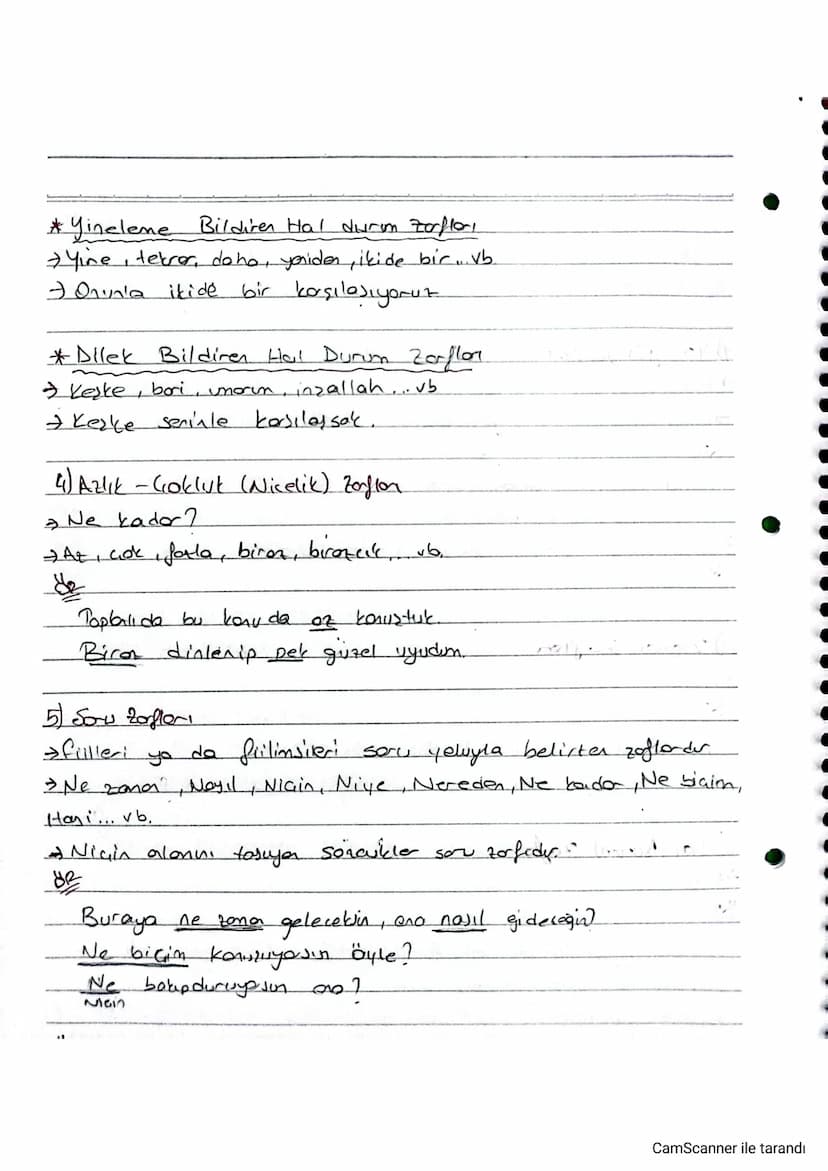 * Yineleme Bildiren Hal durum zarfları
→ Yine, tekrar, daha, yeniden, ikide bir... vb.
→ Onunla ikide bir karşılaşıyoruz
* Dilek Bildiren Hal Durum Zarfları
→ Keşke, bari, umarım, inşallah... vb
→ Keşke seninle karşılaşsak.
4) Azlık - Çokluk (Nicelik) Zarfları
→ Ne kadar?
→ Az, çok, fazla, biraz, birazcık... vb.
ör
Toplantıda bu konuda az konuştuk.
Biraz dinlenip pek güzel uyudum.
5) Soru Zarfları
→ fiilleri ya da fiilimsileri soru yoluyla belirten zarflardır
→ Ne zaman, Nasıl, Niçin, Niye, Nereden, Ne kadar, Ne biçim,
Hani... vb.
→ Niçin alanını taşıyan sözcükler soru zarfıdır.
ör
Buraya ne zaman geleceksin, ona nasıl gideceğin?
Ne biçim konuşuyosun öyle?
Ne bakıpduruyosun ona?
Niçin
CamScanner ile tarandı